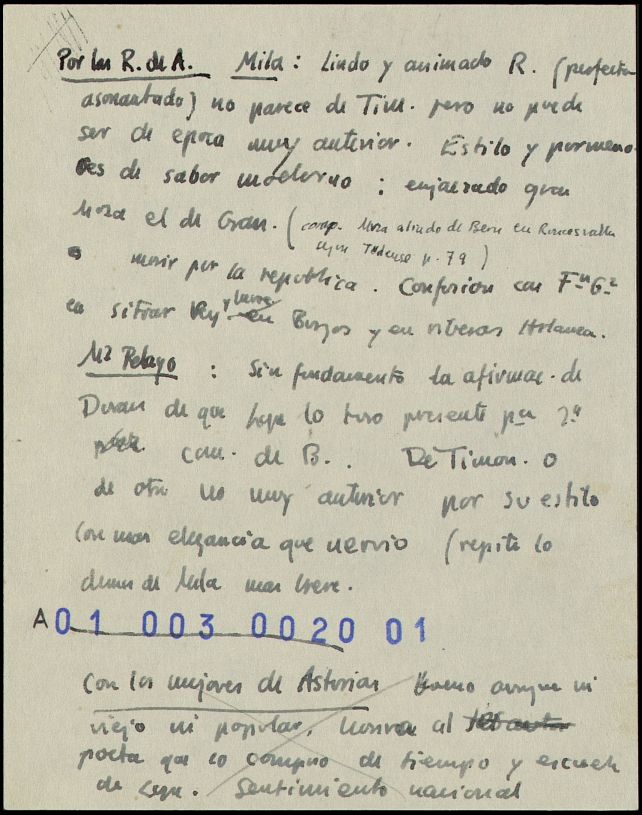 Por los R. de A. Mila: Lindo y animado R. (perfecta
asonantado) no parece de Tim. pero no puede
ser de epoca muy anterior. Estilo y pormeno-
res de sabor moderno: enjaezado gran
el de Gran. (comp. aliado de Bern en Roncesvalles
p. 79)
morir por la republica. Confusion con Fⁿ Gᶻ
en situar Rey y en Burgos y en riberas Arlanza.
Mᶻ Pelayo: Sin fundamento la afirmac. de
Duran de que Lope lo tuvo presente pᵃ 2ª
com. de B.. De Timon. o
de otro no muy anterior por su estilo
con mas elegancia que nervio (repite lo
demas de Mila mas breve.
A01 003 0020 01
Con los mejores de Asturias Bueno aunque ni
viejo ni popular, honra al
poeta que lo compuso de tiempo y escuela
de Lope. Sentimiento nacional